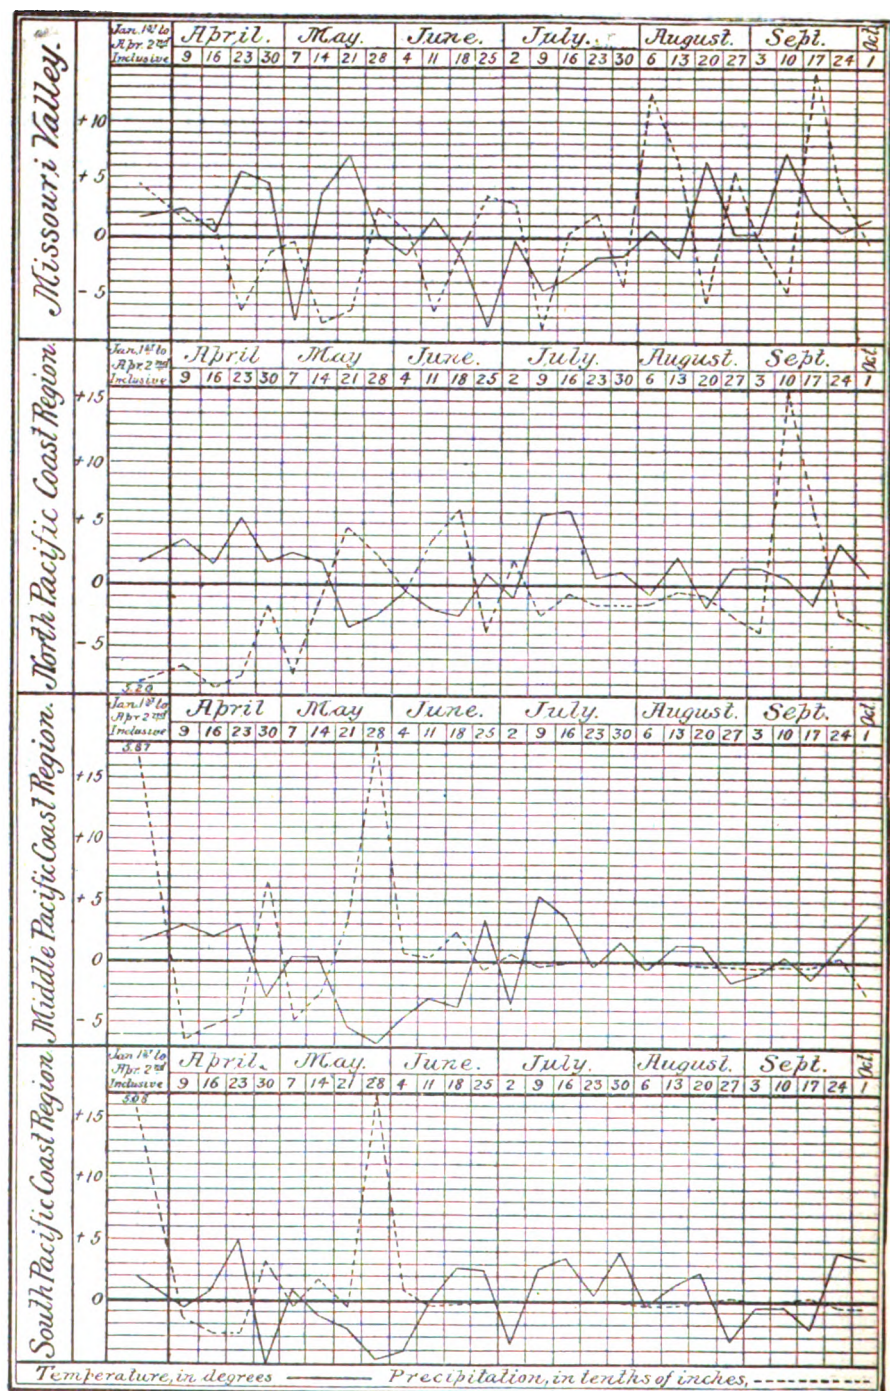 Missouri Valley.
Jan. 1st to
Apr. 2nd
Inclusive
April. May. June. July. August. Sept. Oct.
9 16 23 30 7 14 21 28 4 11 18 25 2 9 16 23 30 6 13 20 27 3 10 17 24 1
+10
+5
0
-5
North Pacific Coast Region.
Jan. 1st to
Apr. 2nd
Inclusive
April May June. July. August. Sept. Oct.
9 16 23 30 7 14 21 28 4 11 18 25 2 9 16 23 30 6 13 20 27 3 10 17 24 1
+15
+10
+5
0
-5
5.20
Middle Pacific Coast Region.
Jan. 1st to
Apr. 2nd
Inclusive
April May June. July. August. Sept. Oct.
9 16 23 30 7 14 21 28 4 11 18 25 2 9 16 23 30 6 13 20 27 3 10 17 24 1
5.87
+15
+10
+5
0
-5
South Pacific Coast Region
Jan. 1st to
Apr. 2nd
Inclusive
April. May. June. July. August. Sept. Oct.
9 16 23 30 7 14 21 28 4 11 18 25 2 9 16 23 30 6 13 20 27 3 10 17 24 1
+15
+10
+5
0
Temperature, in degrees Precipitation, in tenths of inches,